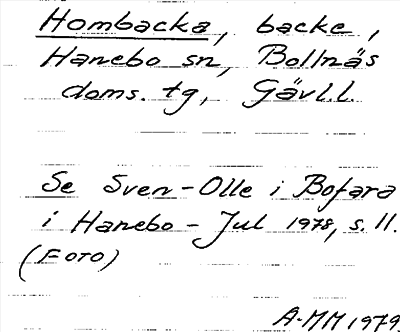 Hombacka, backe,
Hanebo sn, Bollnäs
doms. tg, Gävl.l.
Se Sven-Olle i Bofara
i Hanebo - Jul 1978, s. 11.
(FOTO)
A-MM 1979.